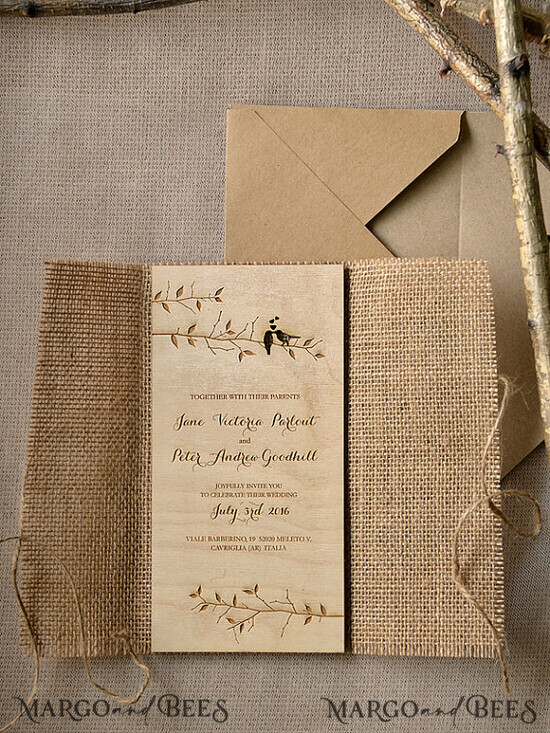 TOGETHER WITH THEIR PARENTS
Jane Victoria Parlout
and
Peter Andrew Goodhill
JOYFULLY INVITE YOU
TO CELEBRATE THEIR WEDDING
July, 3rd 2016
VIALE BARBERINO, 19 52020 MELETO V.
CAVRIGLIA (AR) ITALIA
MARGO and BEES MARGO and BEES